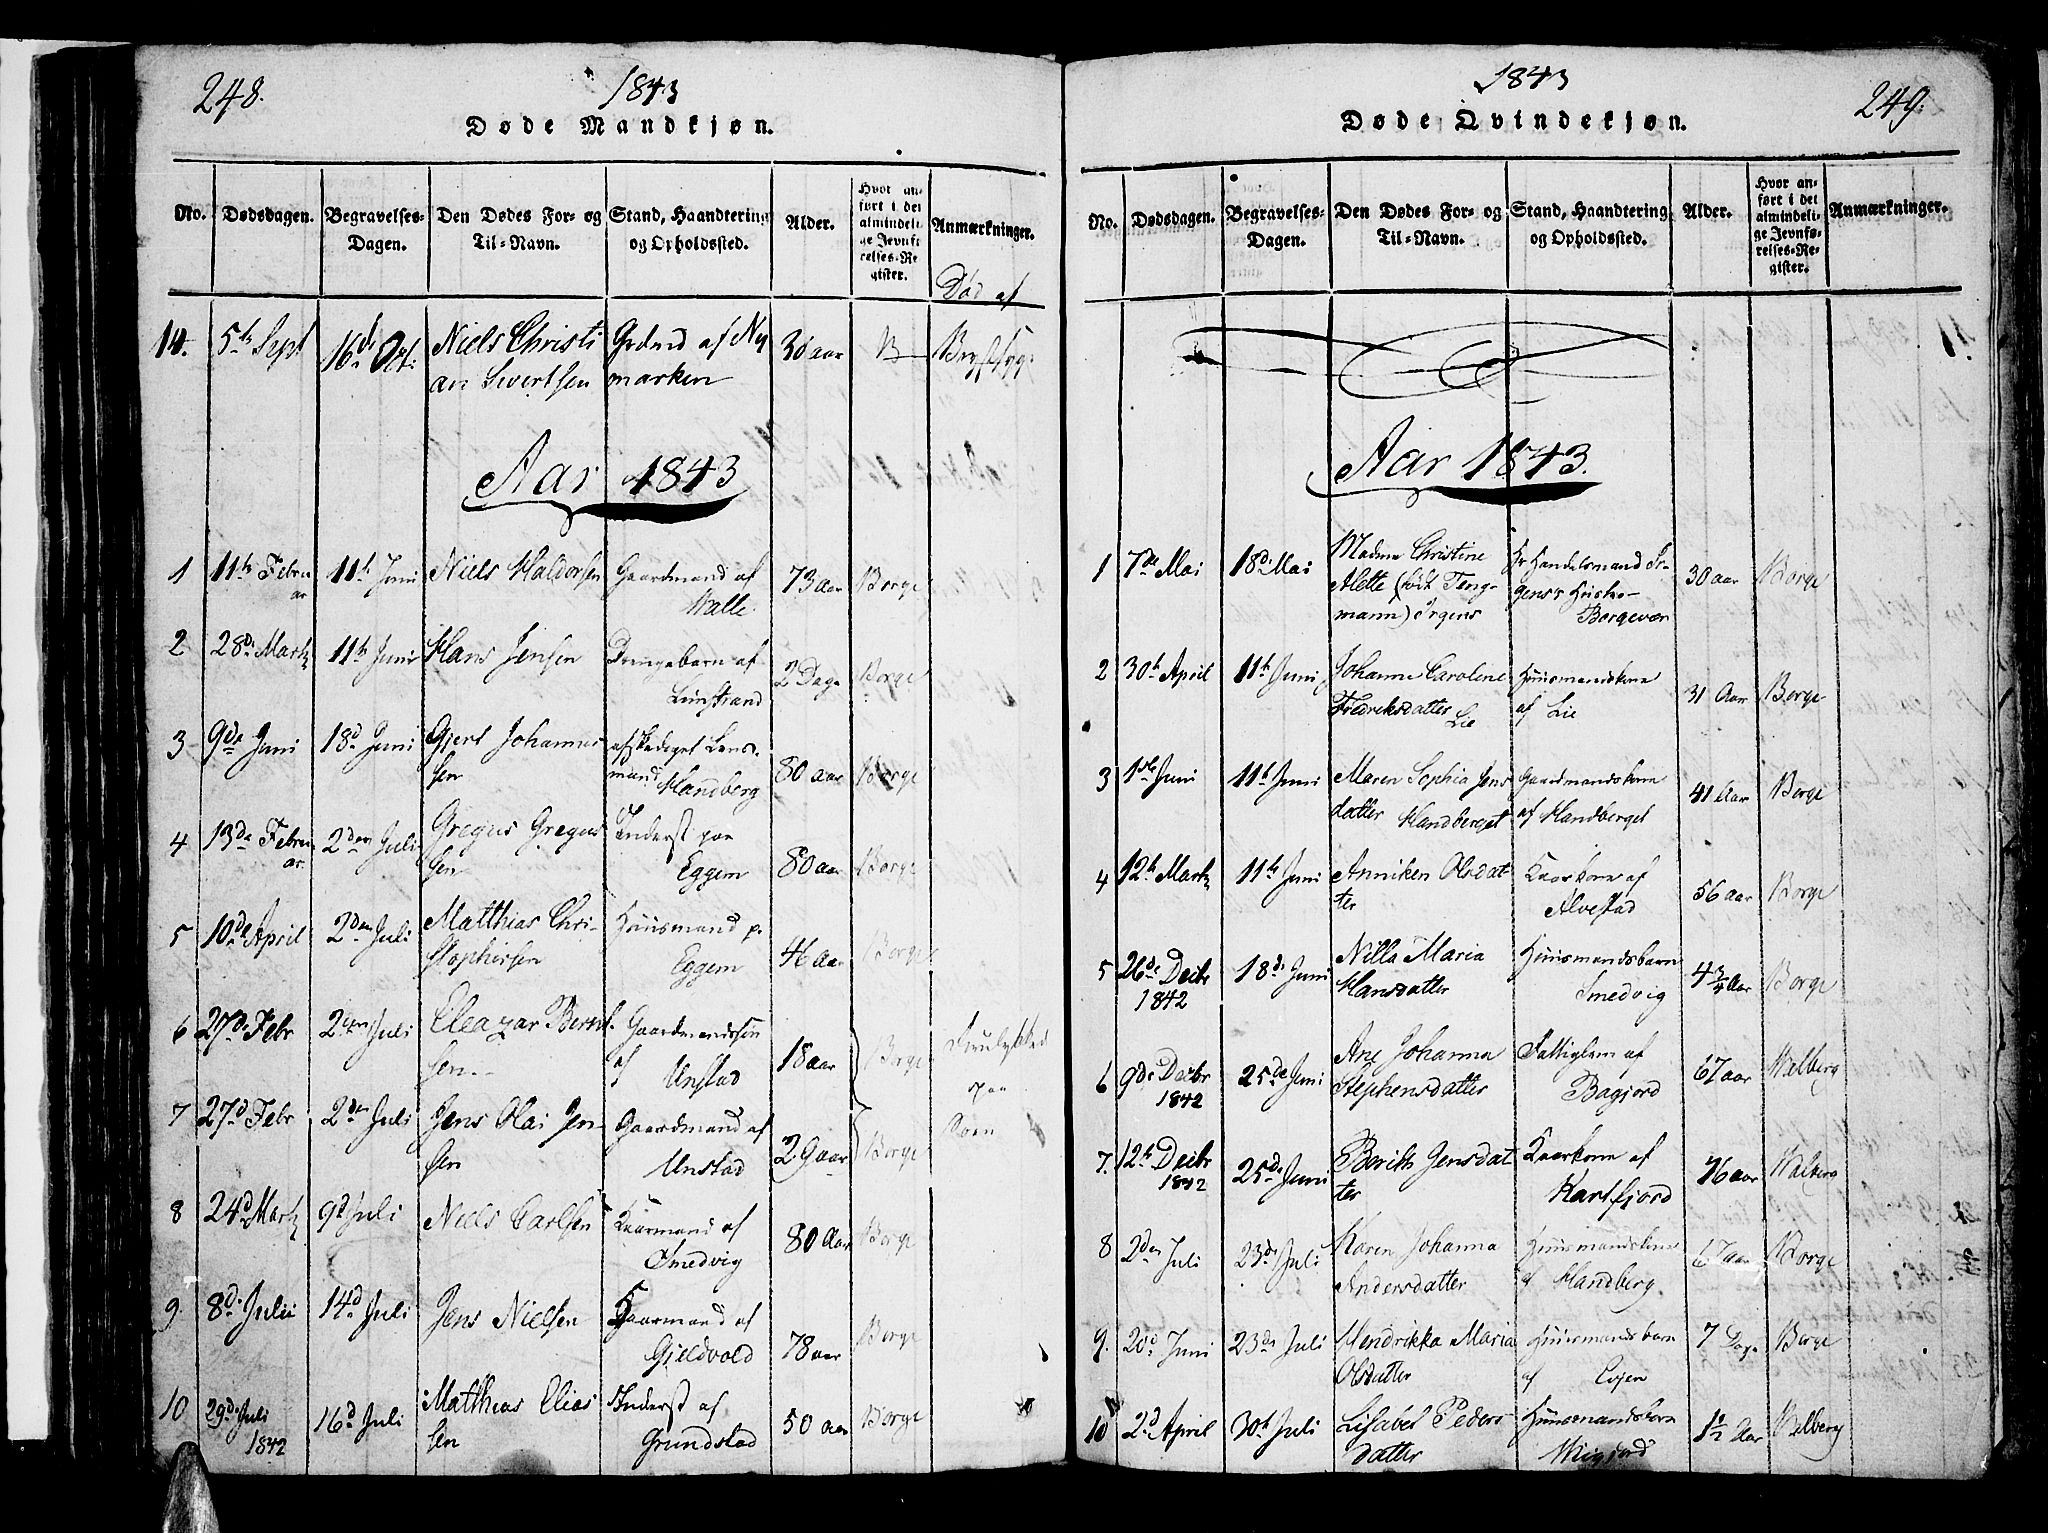 248.
1843
Døde Mandkjøn.
No. Dødsdagen. Begravelses-Dagen. Den Dødes For- og Til-Navn. Stand, Haandtering og Opholdssted. Alder. Hvor anført i det almindelige Jevnførelses-Register. Anmærkninger.
Død af
14. 5te Sept 16de Oct. Niels Christi Gdmd af Ny 30 aar B Brystsyg.
an Sivertsen marken
Aar 1843
1 11te Febru 11te Juni Niels Haldorsen Gaardmand af 73 aar Borge
ar Walle.
2 28de Marts 11te Juni Hans Jensen Drengebarn af 2 Dage Borge
Limstrand
3 9de Juni 18de Juni Gjert Johannes afskediget Lens- 80 aar Borge
sen mand Handberg
4 13de Febru 2den Juli Gregus Gregus Inderst paa 80 aar Borge
ar sen Eggem
5 10de April 2den Juli Matthias Chri- Huusmand p. 46 Aar Borge
stophersen Eggem
6 27de Febr 2den Juli Eleazar Bernt- Gaardmandssøn 18 aar Borge
sen af Unstad paa
7 27d Febr 2den Juli Jens Olai Jen- Gaardmand af 29 aar Borge Søen
sen Unstad
8 24d Marts 9d Juli Niels Carlsen Kaarmand af 80 Aar Borge
Smedvig
9. 8de Julii 14d Juli Jens Nielsen Kaarmand af 78 aar Borge
Gjeldvold
10 29de Juli 16d Juli Matthias Elias Inderst af 50 aar Borge
1842 sen Grundstad
1843
249.
Døde Qvindekjøn.
No. Dødsdagen. Begravelses-Dagen. Den Dødes For- og Til-Navn. Stand, Haandtering og Opholdssted. Alder. Hvor anført i det almindelige Jevnførelses-Register. Anmærkninger.
Aar 1843.
1 7de Mai 18de Mai Madme Christine Hr Handelsmand Ir- 30 aar Borge
Alette (født Teng- gens's Hustro
mann) Irgens Borgevær
2 30te April 11te Juni Johanne Caroline Huusmandskone 31 Aar Borge
Fredriksdatter Lie af Lie
3 1ste Juni 11te Juni Maren Sophia Jens Gaardmandskone 41 Aar Borge
datter Handberget af Handberget
4 12te Marts 11te Juni Anniken Olsdat Kaarkone af 56 aar Borge
ter Alvestad
5 26de Decbr 18de Juni Nilla Maria Huusmandsbarn 4 3/4 Aar Borge
1842 Hansdatter Smedvig
6 9de Decbr 25de Juni Ane Johanna Fattiglem af 67 aar Walberg
1842 Stephensdatter Bagjord
7. 12te Decbr 25de Juni Berith Jensdat Kaarkone af 76 aar Walberg
1842 ter Hartfjord
8 2den Juli 23de Juli Karen Johanna Huusmandskone 67 aar Borge
Andersdatter af Handberg.
9. 20d Juni 23de Juli Hendrikka Maria Huusmandsbarn 7 Dage Borge
Olsdatter af Evjen
10 2d April 30te Juli Lisabet Peders- Huusmandsbarn 1 1/2 Aar Walberg
datter